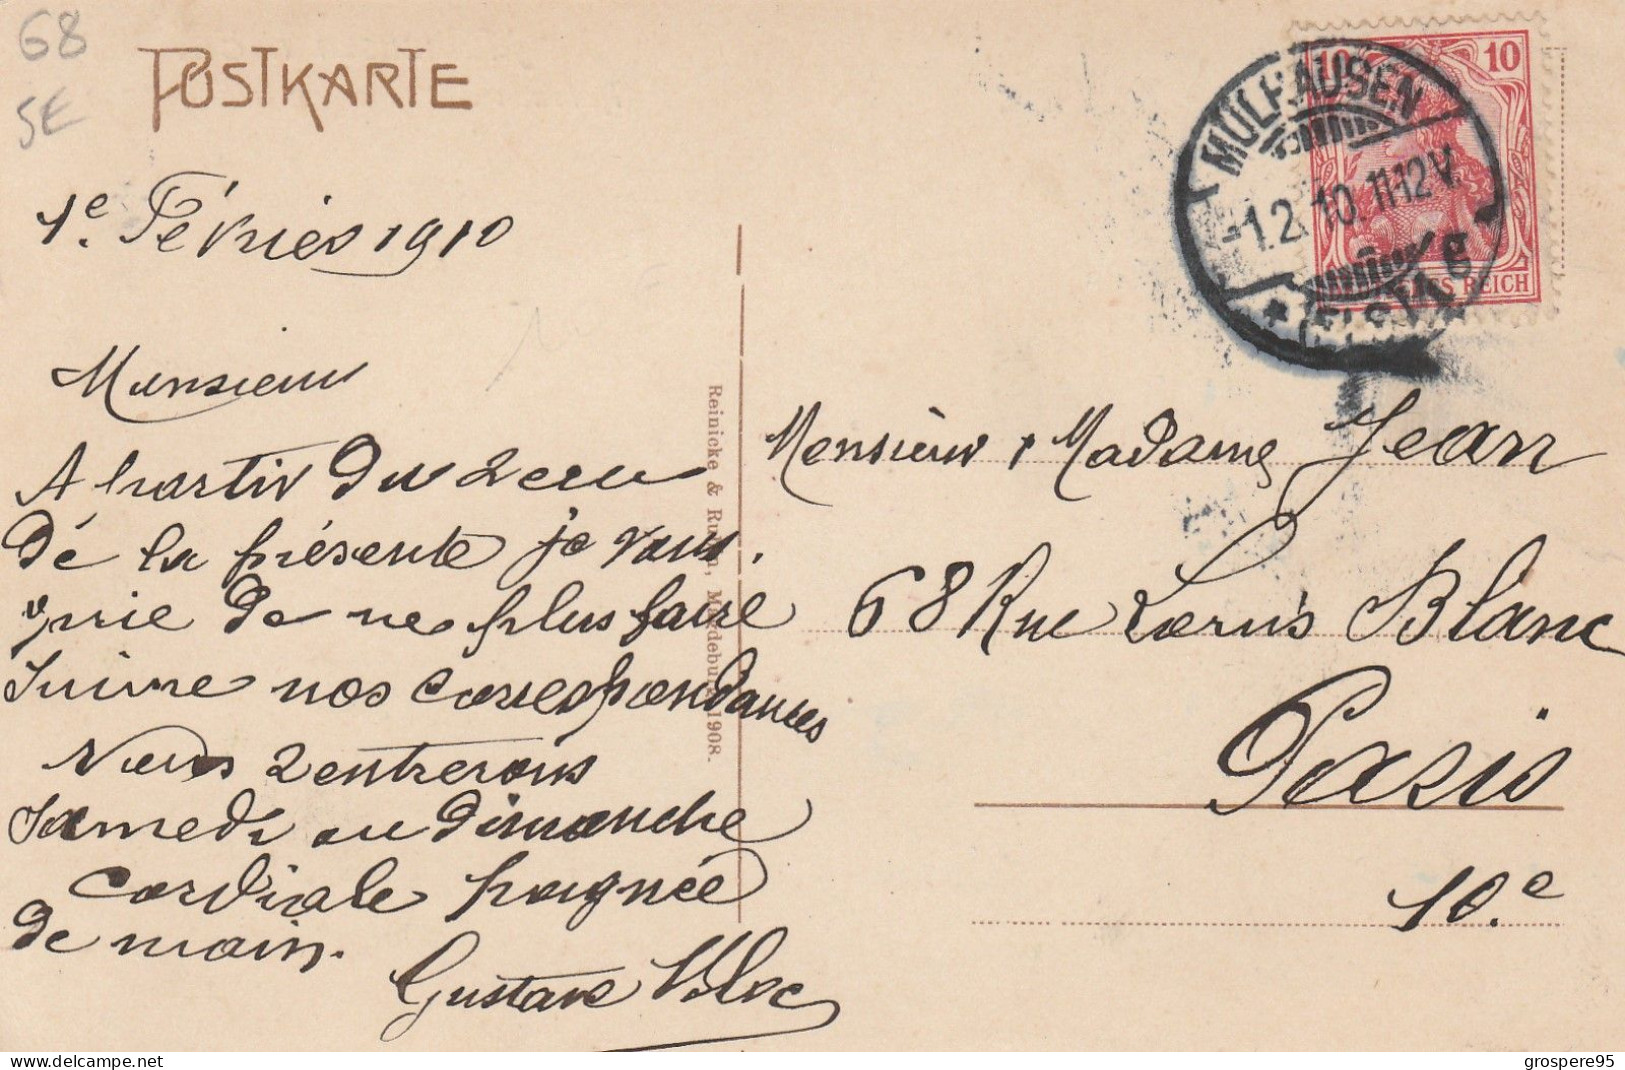 68
5E
POSTKARTE
1e. Février 1910
Monsieur
A partir du recu
de la présente je vous
prie de ne plus faire
suivre nos correspondances
Nous rentrerons
Samedi ou dimanche
cordiale poignée
de main.
Gustave
Reinicke & Rubin, Magdeburg 1908.
10 10
DEUTSCHES REICH
MÜLHAUSEN
-1.2.10.11-12V.
* (ELSAß) g
Monsieur & Madame Jean
68 Rue Louis Blanc
Paris
10.e
grospere95